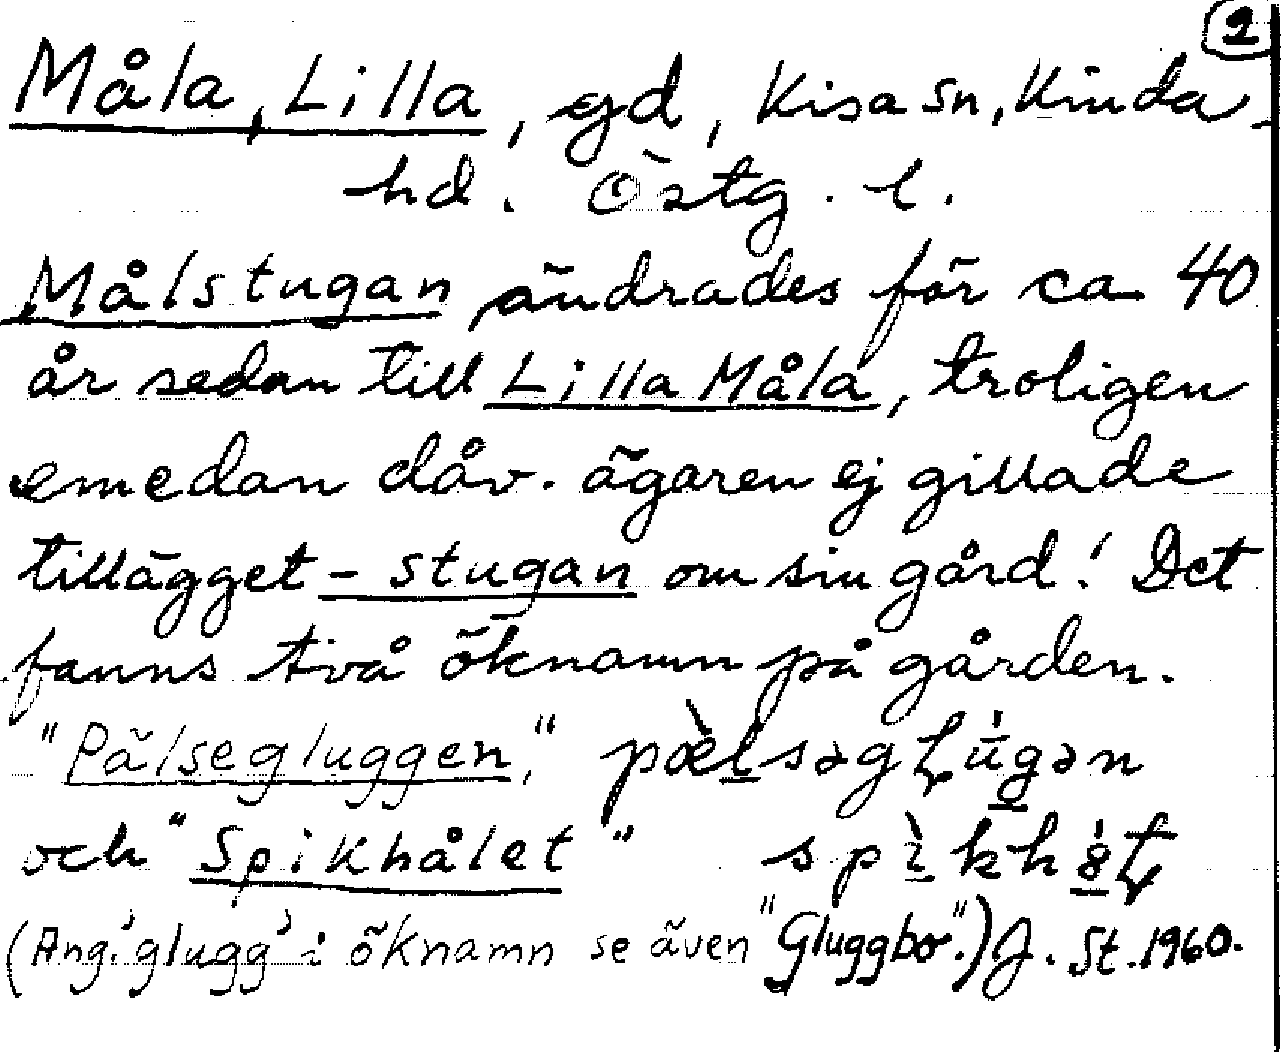 2
Måla, Lilla, gd, Kisa sn, Kinda
hd. Östg. l.
Målstugan ändrades för ca 40
år sedan till Lilla Måla, troligen
emedan dåv. ägaren ej gillade
tillägget -stugan om sin gård! Det
fanns två öknamn på gården.
"Pälsegluggen," 
och "Spikhålet"
(Ang. 'glugg' i öknamn se även "Gluggbo".) J. St. 1960.